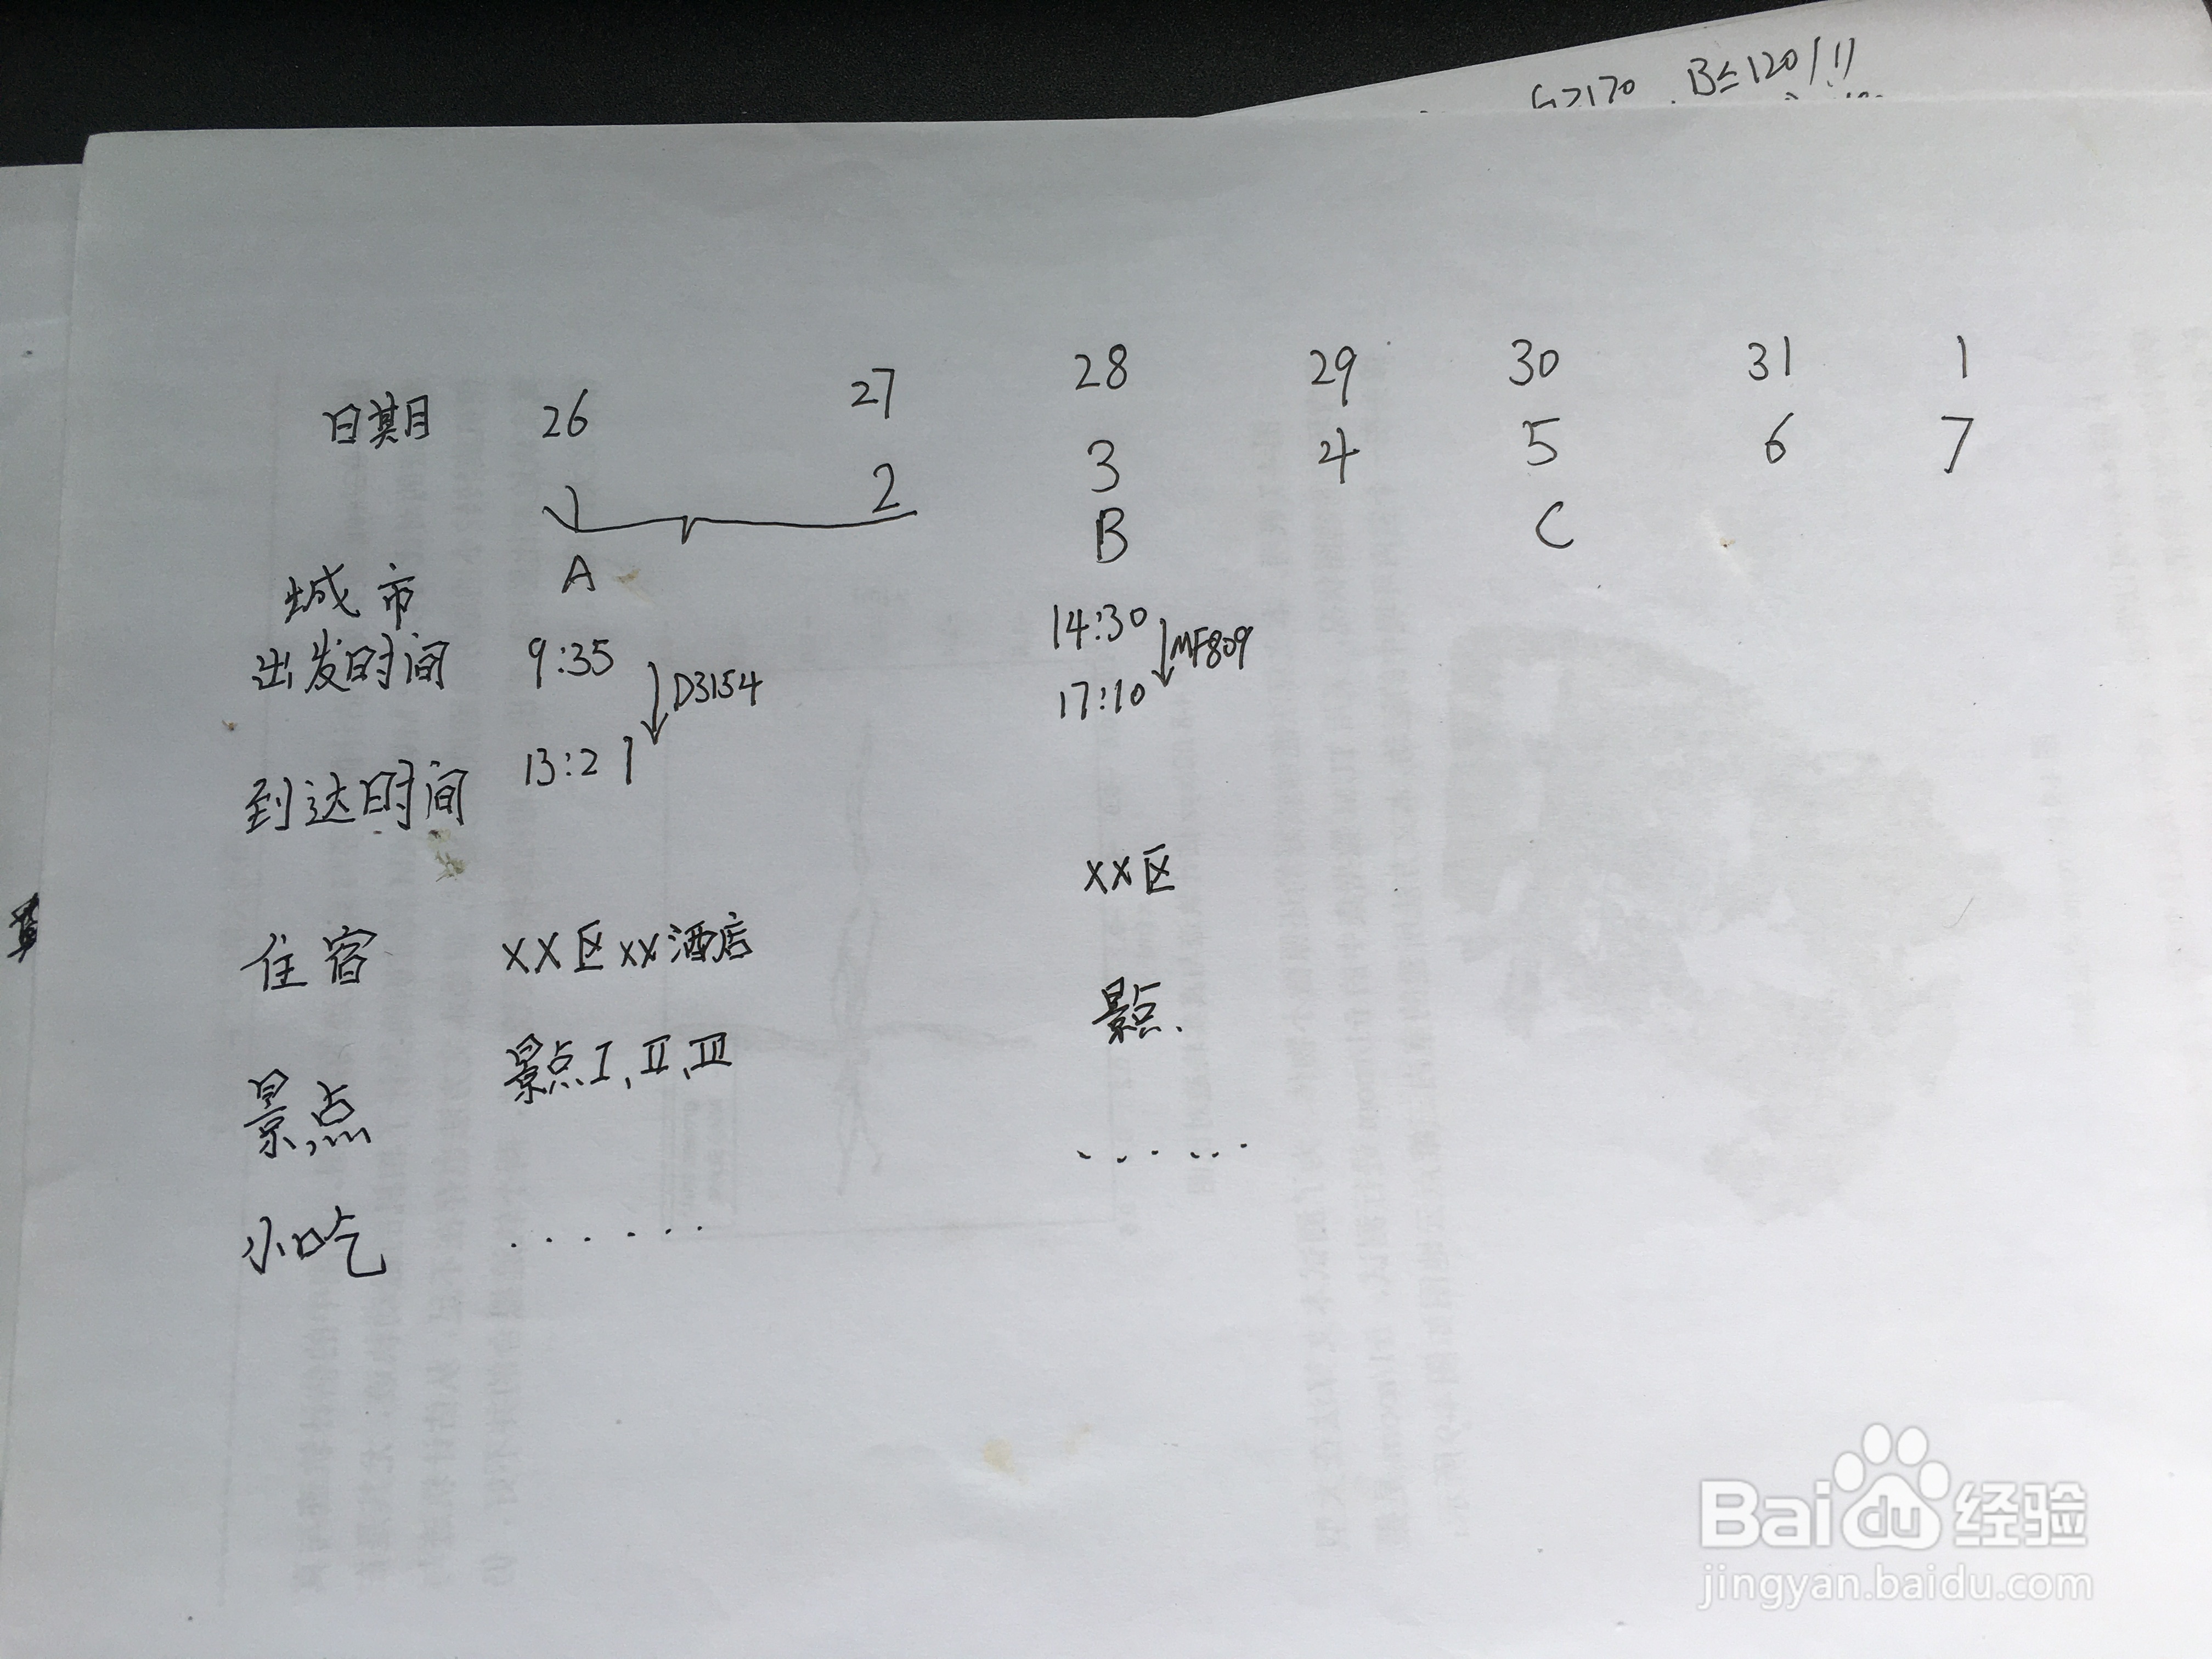 G>170 B≤120/1)
日期 26 27 28 29 30 31 1
1 2 3 4 5 6 7
城市 A B C
出发时间 9:35 14:30
D3154 MF809
到达时间 13:21 17:10
住宿 XX区XX酒店 XX区
景点 景点I、II、III 景点、
小吃 ...... ......
Baidu经验
jingyan.baidu.com